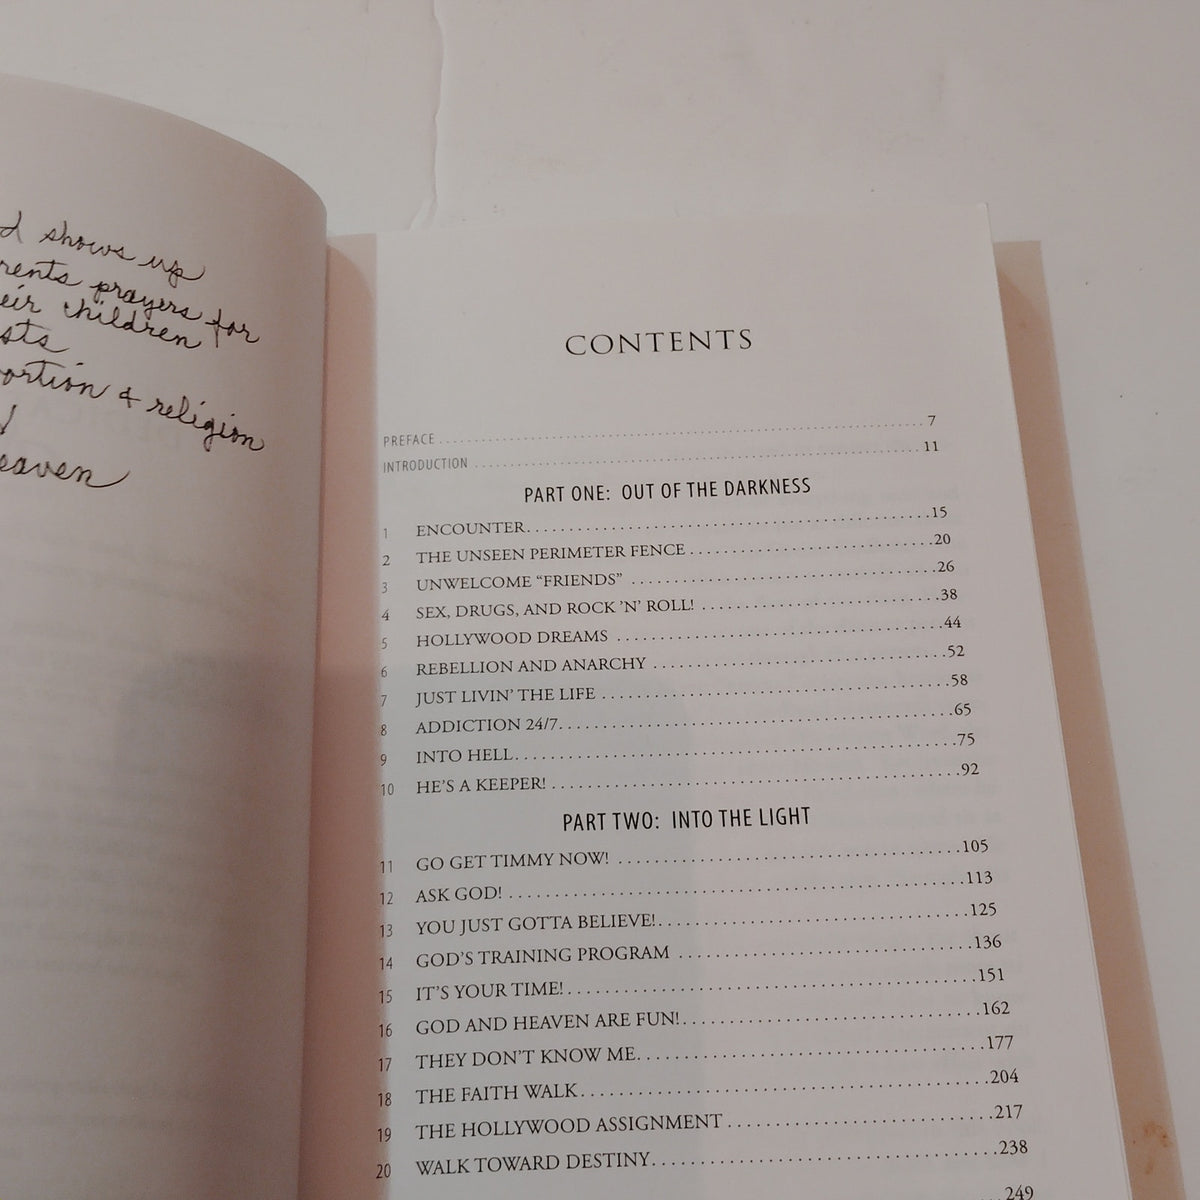 shows up
prayers for
children
+ religion
CONTENTS
PREFACE 7
INTRODUCTION 11
PART ONE: OUT OF THE DARKNESS
1 ENCOUNTER 15
2 THE UNSEEN PERIMETER FENCE 20
3 UNWELCOME “FRIENDS” 26
4 SEX, DRUGS, AND ROCK ’N’ ROLL! 38
5 HOLLYWOOD DREAMS 44
6 REBELLION AND ANARCHY 52
7 JUST LIVIN’ THE LIFE 58
8 ADDICTION 24/7 65
9 INTO HELL 75
10 HE’S A KEEPER! 92
PART TWO: INTO THE LIGHT
11 GO GET TIMMY NOW! 105
12 ASK GOD! 113
13 YOU JUST GOTTA BELIEVE! 125
14 GOD’S TRAINING PROGRAM 136
15 IT’S YOUR TIME! 151
16 GOD AND HEAVEN ARE FUN! 162
17 THEY DON’T KNOW ME 177
18 THE FAITH WALK 204
19 THE HOLLYWOOD ASSIGNMENT 217
20 WALK TOWARD DESTINY 238
249